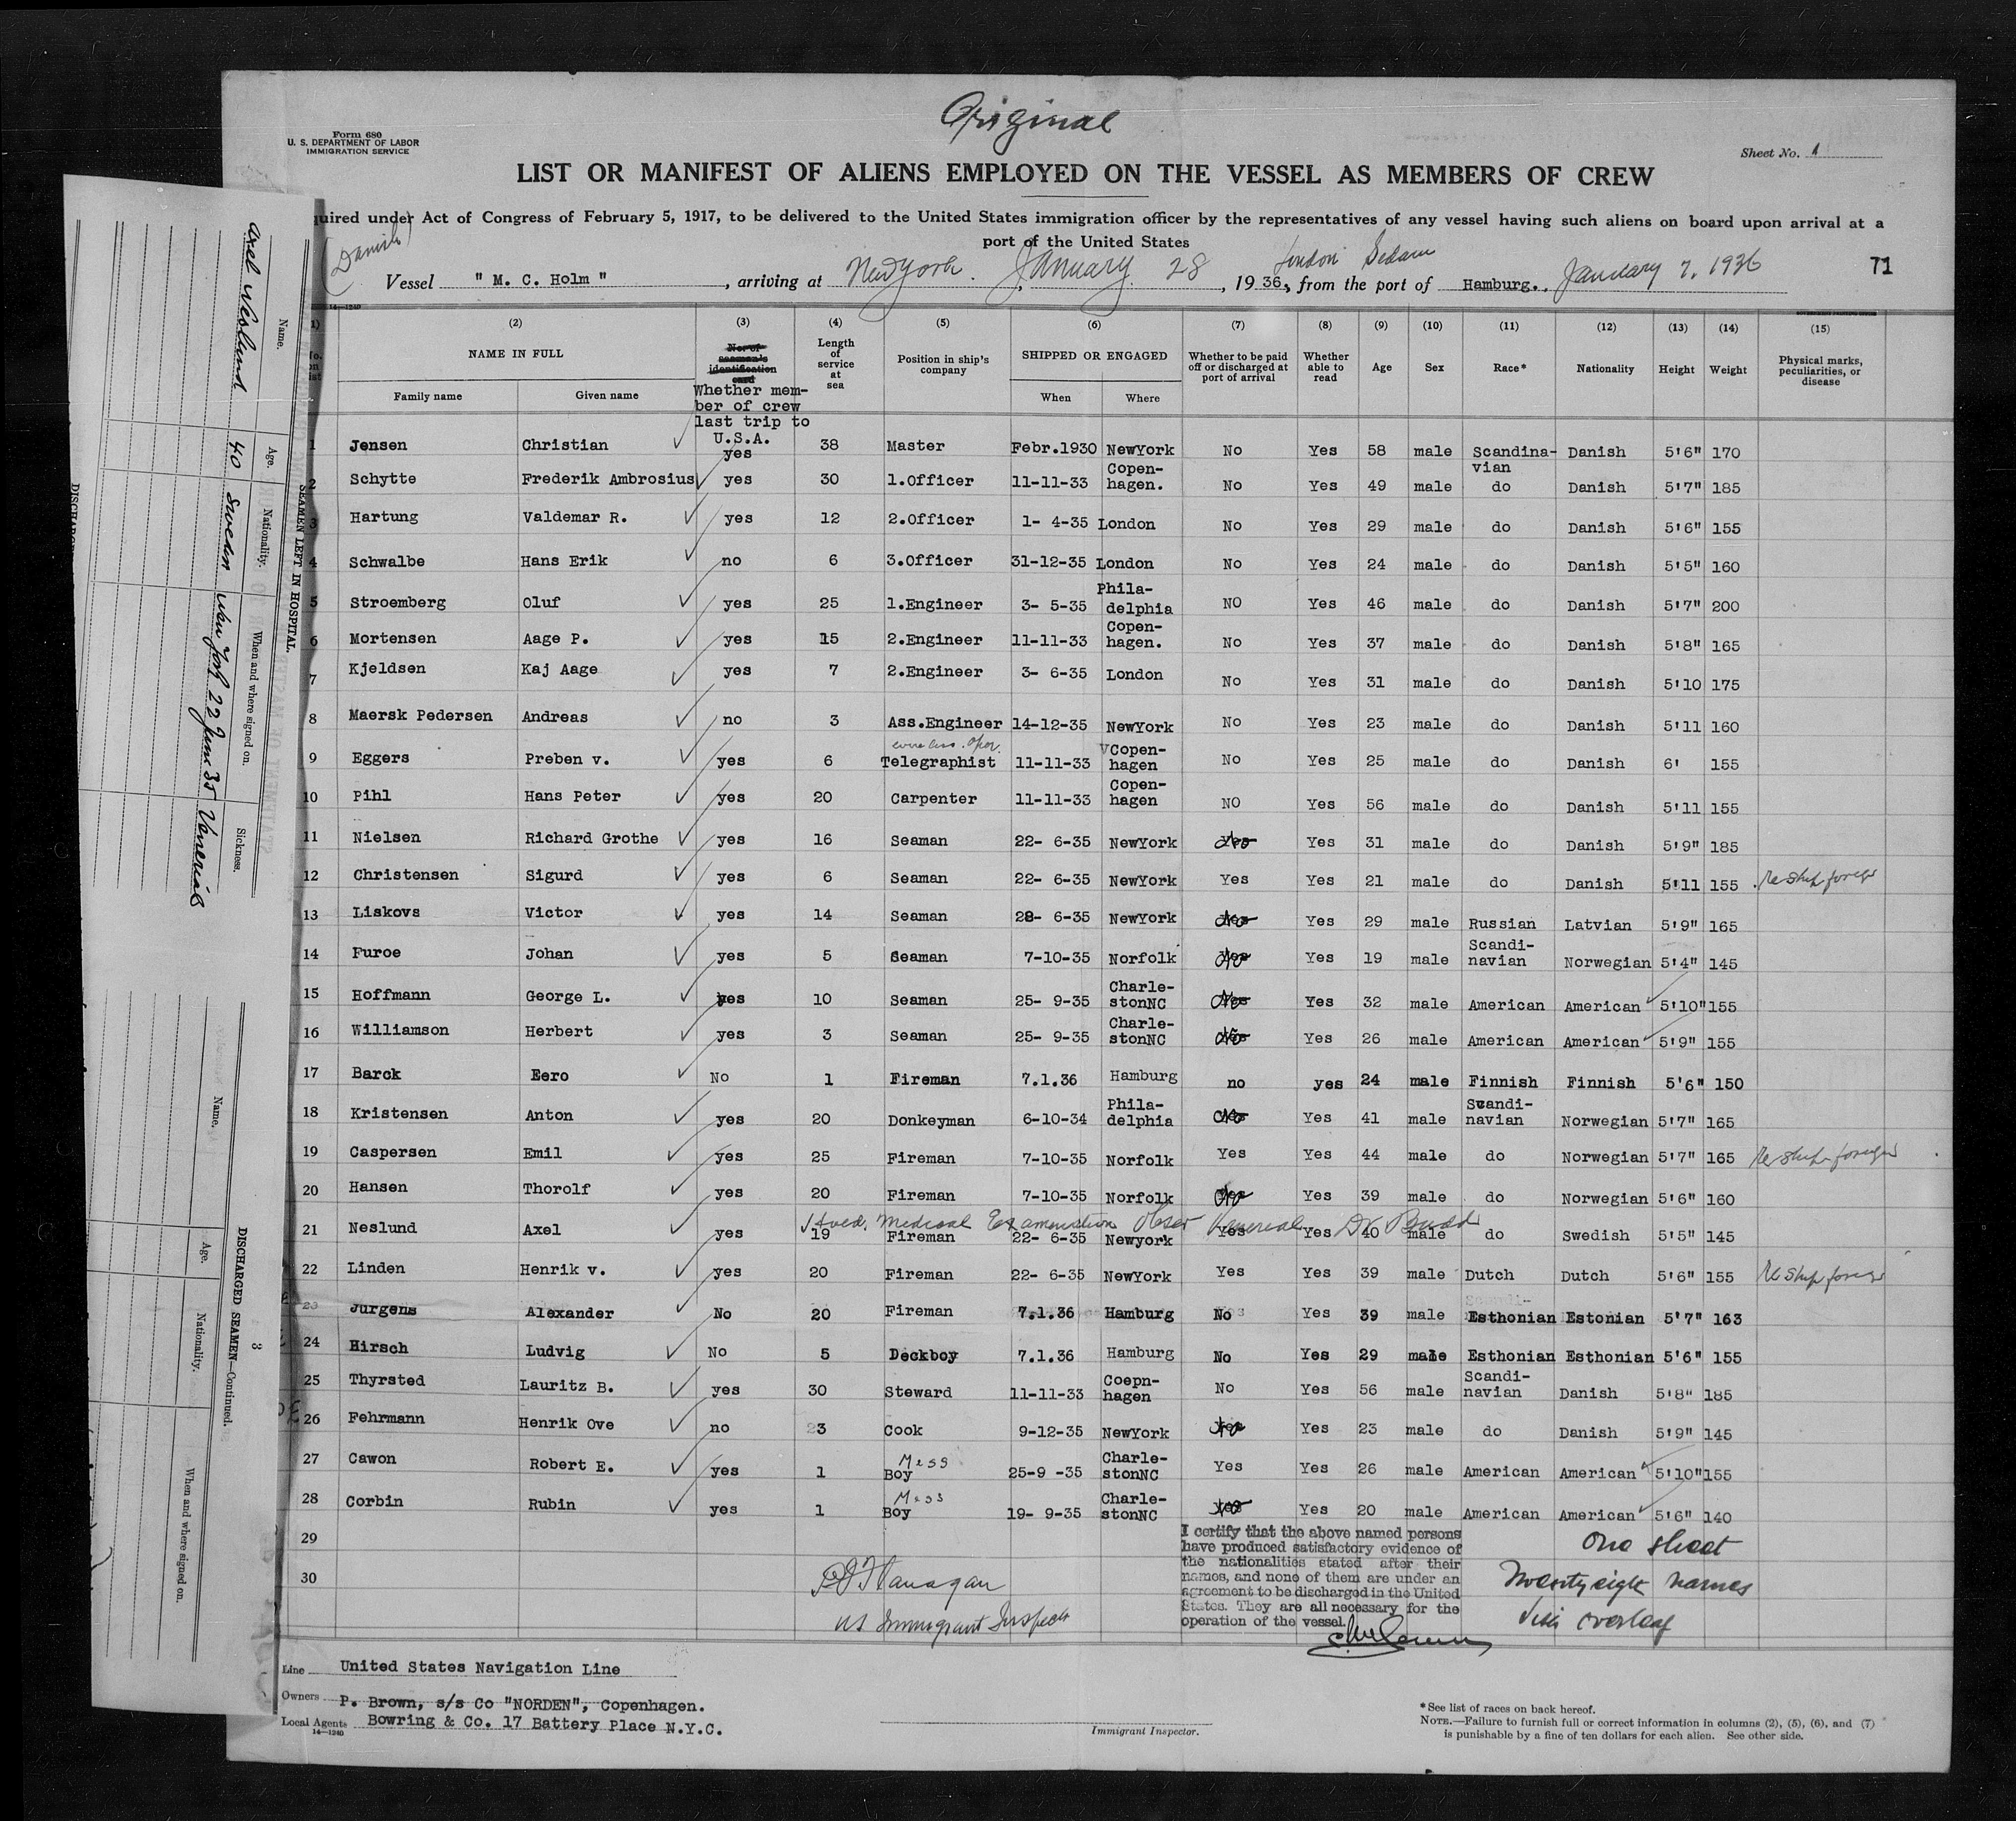 Original
Form 680
U. S. DEPARTMENT OF LABOR
IMMIGRATION SERVICE
Sheet No. 1
LIST OR MANIFEST OF ALIENS EMPLOYED ON THE VESSEL AS MEMBERS OF CREW
quired under Act of Congress of February 5, 1917, to be delivered to the United States immigration officer by the representatives of any vessel having such aliens on board upon arrival at a
port of the United States
(Danish)
Vessel " M. C. Holm " , arriving at New York. January 28 , 1936, from the port of London Hamburg. January 7, 1936
71
14—1240
(2) (3) (4) (5) (6) (7) (8) (9) (10) (11) (12) (13) (14) (15)
NAME IN FULL
Family name Given name
No. of seaman's identification card
Whether member of crew last trip to U.S.A.
Length of service at sea
Position in ship's company
SHIPPED OR ENGAGED
When Where
Whether to be paid off or discharged at port of arrival
Whether able to read
Age Sex Race* Nationality Height Weight
Physical marks, peculiarities, or disease
1 Jensen Christian yes 38 Master Febr.1930 NewYork No Yes 58 male Scandinavian Danish 5'6" 170
2 Schytte Frederik Ambrosius yes 30 1.Officer 11-11-33 Copenhagen. No Yes 49 male do Danish 5'7" 185
3 Hartung Valdemar R. yes 12 2.Officer 1- 4-35 London No Yes 29 male do Danish 5'6" 155
4 Schwalbe Hans Erik no 6 3.Officer 31-12-35 London No Yes 24 male do Danish 5'5" 160
5 Stroemberg Oluf yes 25 1.Engineer 3- 5-35 Philadelphia NO Yes 46 male do Danish 5'7" 200
6 Mortensen Aage P. yes 15 2.Engineer 11-11-33 Copenhagen. No Yes 37 male do Danish 5'8" 165
7 Kjeldsen Kaj Aage yes 7 2.Engineer 3- 6-35 London No Yes 31 male do Danish 5'10 175
8 Maersk Pedersen Andreas no 3 Ass.Engineer 14-12-35 NewYork No Yes 23 male do Danish 5'11 160
9 Eggers Preben v. yes 6 wireless. Oper. Telegraphist 11-11-33 Copenhagen No Yes 25 male do Danish 6' 155
10 Pihl Hans Peter yes 20 Carpenter 11-11-33 Copenhagen NO Yes 56 male do Danish 5'11 155
11 Nielsen Richard Grothe yes 16 Seaman 22- 6-35 NewYork No Yes 31 male do Danish 5'9" 185
12 Christensen Sigurd yes 6 Seaman 22- 6-35 NewYork Yes Yes 21 male do Danish 5'11 155 Re ship foreign
13 Liskovs Victor yes 14 Seaman 28- 6-35 NewYork No Yes 29 male Russian Latvian 5'9" 165
14 Furoe Johan yes 5 Seaman 7-10-35 Norfolk No Yes 19 male Scandinavian Norwegian 5'4" 145
15 Hoffmann George L. yes 10 Seaman 25- 9-35 CharlestonNC No Yes 32 male American American 5'10" 155
16 Williamson Herbert yes 3 Seaman 25- 9-35 CharlestonNC No Yes 26 male American American 5'9" 155
17 Barck Eero No 1 Fireman 7.1.36 Hamburg no yes 24 male Finnish Finnish 5'6" 150
18 Kristensen Anton yes 20 Donkeyman 6-10-34 Philadelphia No Yes 41 male Scandinavian Norwegian 5'7" 165
19 Caspersen Emil yes 25 Fireman 7-10-35 Norfolk Yes Yes 44 male do Norwegian 5'7" 165 Re ship foreign
20 Hansen Thorolf yes 20 Fireman 7-10-35 Norfolk No Yes 39 male do Norwegian 5'6" 160
Medical Examination Obser Venereal Dr
21 Neslund Axel yes 19 Fireman 22- 6-35 Newyork Yes Yes 40 male do Swedish 5'5" 145
22 Linden Henrik v. yes 20 Fireman 22- 6-35 NewYork Yes Yes 39 male Dutch Dutch 5'6" 155 Re Ship foreign
23 Jurgens Alexander No 20 Fireman 7.1.36 Hamburg No Yes 39 male Esthonian Estonian 5'7" 163
24 Hirsch Ludvig No 5 Deckboy 7.1.36 Hamburg No Yes 29 male Esthonian Esthonian 5'6" 155
25 Thyrsted Lauritz B. yes 30 Steward 11-11-33 Coepnhagen No Yes 56 male Scandinavian Danish 5'8" 185
26 Fehrmann Henrik Ove no 3 Cook 9-12-35 NewYork No Yes 23 male do Danish 5'9" 145
27 Cawon Robert E. yes 1 Mess Boy 25-9 -35 CharlestonNC Yes Yes 26 male American American 5'10" 155
28 Corbin Rubin yes 1 Mess Boy 19- 9-35 CharlestonNC Yes 20 male American American 5'6" 140
29
30
I certify that the above named persons
have produced satisfactory evidence of
the nationalities stated after their
names, and none of them are under an
agreement to be discharged in the United
States. They are all necessary for the
operation of the vessel.
One sheet
Twenty eight names
overleaf
Flanagan
US Immigrant Inspector
Line United States Navigation Line
Owners P. Brown, s/s Co "NORDEN", Copenhagen.
Local Agents Bowring & Co. 17 Battery Place N.Y.C.
14—1240
Immigrant Inspector.
*See list of races on back hereof.
NOTE.—Failure to furnish full or correct information in columns (2), (5), (6), and (7)
is punishable by a fine of ten dollars for each alien. See other side.
SEAMEN LEFT IN HOSPITAL.
Name. Age. Nationality. When and where signed on. Sickness.
Axel Neslund 40 Sweden New York 22 June 35 Venerials
3
DISCHARGED SEAMEN—Continued.
Name. Age. Nationality. When and where signed on.